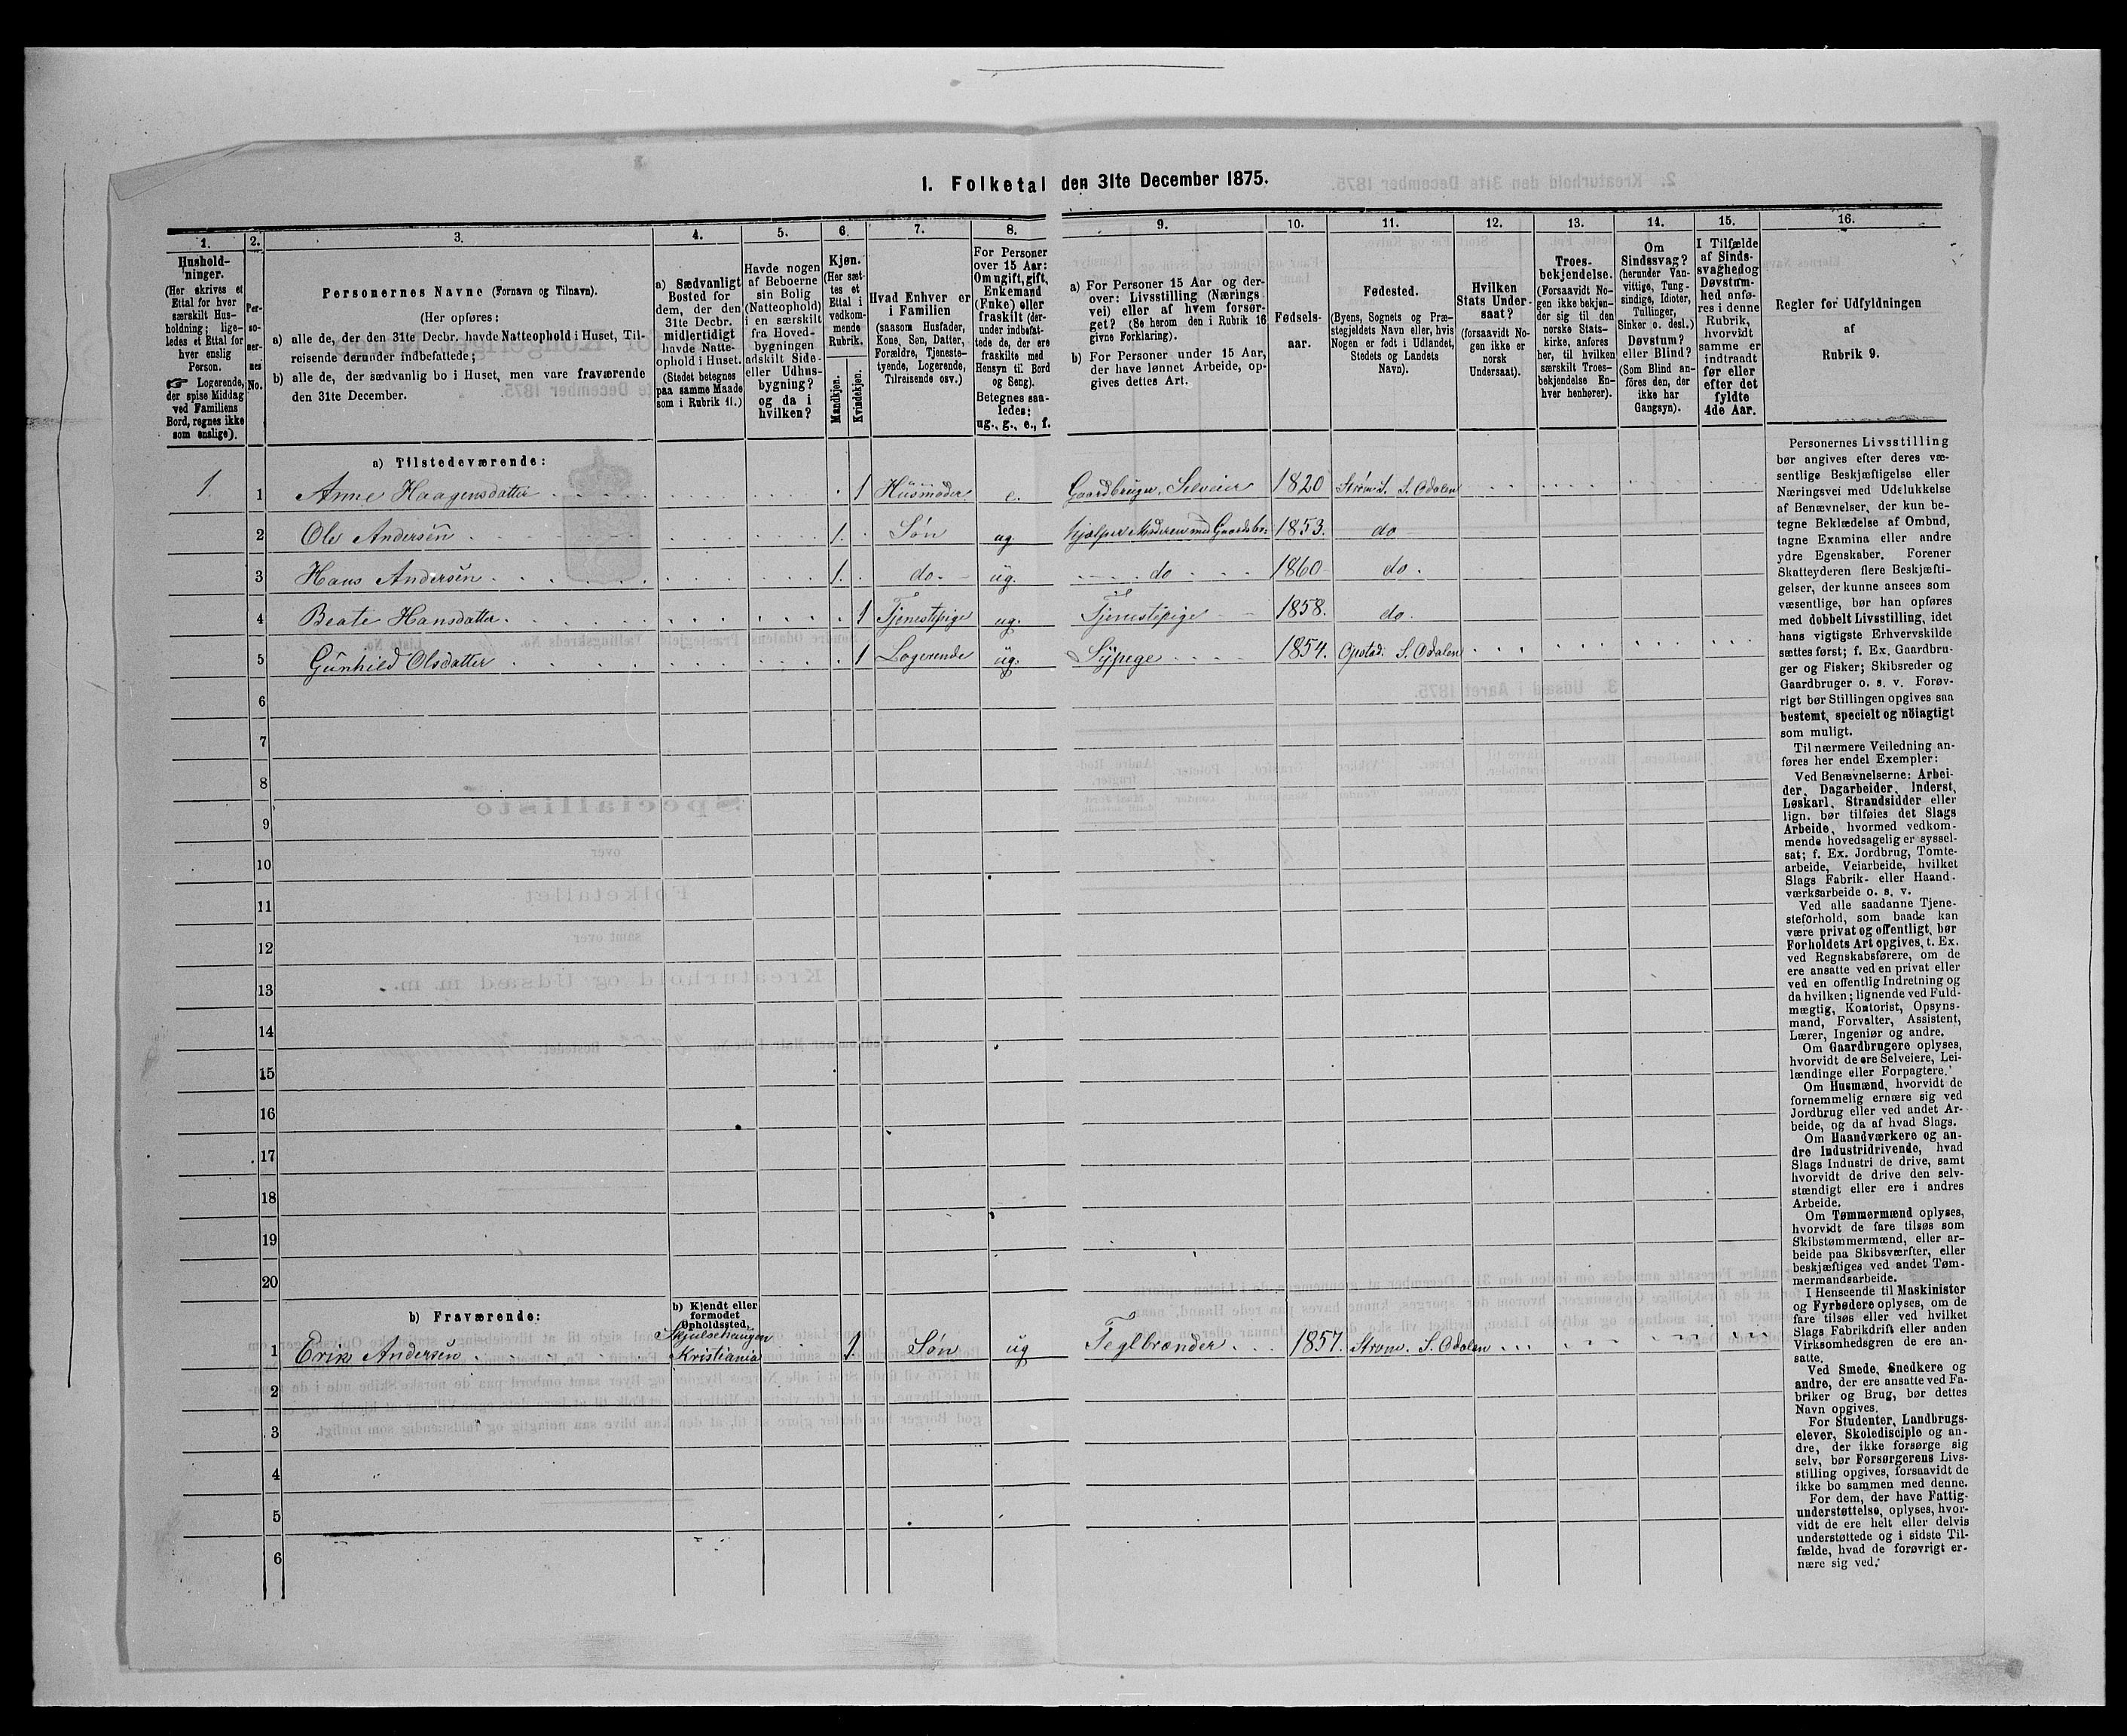 1. Folketal den 31te December 1875.
1.
2.
3.
4.
5.
6.
7.
8.
9.
10.
11.
12.
13.
14.
15.
16.
Hushold-
ninger.
(Her skrives et
Ettal for hver
særskilt Hus-
holdning; lige-
ledes et Ettal for
hver enslig
Person.
☞ Logerende,
der spise Middag
ved Familiens
Bord, regnes ikke
som enslige).
Per-
so-
ner-
nes
No.
Personernes Navne (Fornavn og Tilnavn).
(Her opføres:
a) alle de, der den 31te Decbr. havde Natteophold i Huset, Til-
reisende derunder indbefattede;
b) alle de, der sædvanlig bo i Huset, men vare fraværende
den 31te December.
a) Sædvanligt
Bosted for
dem, der den
31te Decbr.
midlertidigt
havde Natte-
ophold i Huset.
(Stedet betegnes
paa samme Maade
som i Rubrik 11.)
Havde nogen
af Beboerne
sin Bolig
(Natteophold)
i en særskilt
fra Hoved-
bygningen
adskilt Side-
eller Udhus-
bygning?
og da i
hvilken?
Kjøn.
(Her sæt-
tes et
Ettal i
vedkom-
mende
Rubrik.
Mandkjøn.
Kvindekjøn.
Hvad Enhver er
i Familien
(saasom Husfader,
Kone, Søn, Datter,
Forældre, Tjeneste-
tyende, Logerende,
Tilreisende osv.)
For Personer
over 15 Aar:
Om ugift, gift,
Enkemand
(Enke) eller
fraskilt (der-
under indbefat-
tede de, der ere
fraskilte med
Hensyn til Bord
og Seng).
Betegnes saa-
ledes:
ug., g., e., f.
a) For Personer 15 Aar og der-
over: Livsstilling (Nærings-
vei) eller af hvem forsør-
get? (Se herom den i Rubrik 16
givne Forklaring).
b) For Personer under 15 Aar,
der have lønnet Arbeide, op-
gives dettes Art.
Fødsels-
aar.
Fødested.
(Byens, Sognets og Præ-
stegjeldets Navn eller, hvis
Nogen er født i Udlandet,
Stedets og Landets
Navn).
Hvilken
Stats Under-
saat?
(forsaavidt No-
gen ikke er
norsk
Undersaat).
Troes-
bekjendelse.
(Forsaavidt No-
gen ikke bekjen-
der sig til den
norske Stats-
kirke, anføres
her, til hvilken
særskilt Troes-
bekjendelse En-
hver henhører).
Om
Sindssvag?
(herunder Van-
vittige, Tung-
sindige, Idioter,
Tullinger,
Sinker o. desl.)
Døvstum?
eller Blind?
(Som Blind an-
føres den, der
ikke har
Gangsyn).
I Tilfælde
af Sinds-
svaghed og
Døvstum-
hed anfø-
res i denne
Rubrik,
hvorvidt
samme er
indtraadt
før eller
efter det
fyldte
4de Aar.
Regler for Udfyldningen
af
Rubrik 9.
a) Tilstedeværende:
1 1 Anne Haagensdatter 1 Husmoder e. Gaardbruger, Selveier 1820 Strøm S. S. Odalen
2 Ole Andersen 1. Søn ug. hjælper Moderen med Gaardsbr. 1853. do
3 Hans Andersen 1. do. ug. do 1860 do.
4 Beate Hansdatter 1 Tjenestepige ug. Tjenestepige 1858. do.
5 Gunhild Olsdatter 1 Logerende ug. Sypege 1854. Opstad. S. Odalen
6
7
8
9
10
11
12
13
14
15
16
17
18
19
20
b) Fraværende:
b) Kjendt eller
formodet
Opholdssted.
1 Erik Andersen Skjulsehaugen Kristiania 1 Søn ug Teglbrænder 1857. Strøm. S. Odalen
2
3
4
5
6
Personernes Livsstilling
bør angives efter deres væ-
sentlige Beskjæftigelse eller
Næringsvei med Udelukkelse
af Benævnelser, der kun be-
tegne Beklædelse af Ombud,
tagne Examina eller andre
ydre Egenskaber. Forener
Skatteyderen flere Beskjæfti-
gelser, der kunne ansees som
væsentlige, bør han opføres
med dobbelt Livsstilling, idet
hans vigtigste Erhvervskilde
sættes først; f. Ex. Gaardbru-
ger og Fisker; Skibsreder og
Gaardbruger o. s. v. Forøv-
rigt bør Stillingen opgives saa
bestemt, specielt og nöiagtigt
som muligt.
Til nærmere Veiledning an-
føres her endel Exempler:
Ved Benævnelserne: Arbei-
der, Dagarbeider, Inderst,
Løskarl, Strandsidder eller
lign. bør tilføies det Slags
Arbeide, hvormed vedkom-
mende hovedsagelig er syssel-
sat; f. Ex. Jordbrug, Tomte-
arbeide, Veiarbeide, hvilket
Slags Fabrik- eller Haand-
værksarbeide o. s. v.
Ved alle saadanne Tjene-
steforhold, som baade kan
være privat og offentligt, bør
Forholdets Art opgives, t. Ex.
ved Regnskabsførere, om de
ere ansatte ved en privat eller
ved en offentlig Indretning og
da hvilken; lignende ved Fuld-
mægtig, Kontorist, Opsyns-
mand, Forvalter, Assistent,
Lærer, Ingeniør og andre.
Om Gaardbrugere oplyses,
hvorvidt de ere Selveiere, Lei-
lændinge eller Forpagtere.
Om Husmænd, hvorvidt de
fornemmelig ernære sig ved
Jordbrug eller ved andet Ar-
beide, og da af hvad Slags.
Om Haandværkere og an-
dre Industridrivende, hvad
Slags Industri de drive, samt
hvorvidt de drive den selv-
stændigt eller ere i andres
Arbeide.
Om Tømmermænd oplyses,
hvorvidt de fare tilsøs som
Skibstømmermænd, eller ar-
beide paa Skibsværfter, eller
beskjæftiges ved andet Tøm-
mermandsarbeide.
I Henseende til Maskinister
og Fyrbødere oplyses, om de
fare tilsøs eller ved hvilket
Slags Fabrikdrift eller anden
Virksomhedsgren de ere an-
satte.
Ved Smede, Snedkere og
andre, der ere ansatte ved Fa-
briker og Brug, bør dettes
Navn opgives.
For Studenter, Landbrugs-
elever, Skoledisciple og an-
dre, der ikke forsørge sig
selv, bør Forsørgerens Livs-
stilling opgives, forsaavidt de
ikke bo sammen med denne.
For dem, der have Fattig-
understøttelse, oplyses, hvor-
vidt de ere helt eller delvis
understøttede og i sidste Til-
fælde, hvad de forøvrigt er-
nære sig ved.